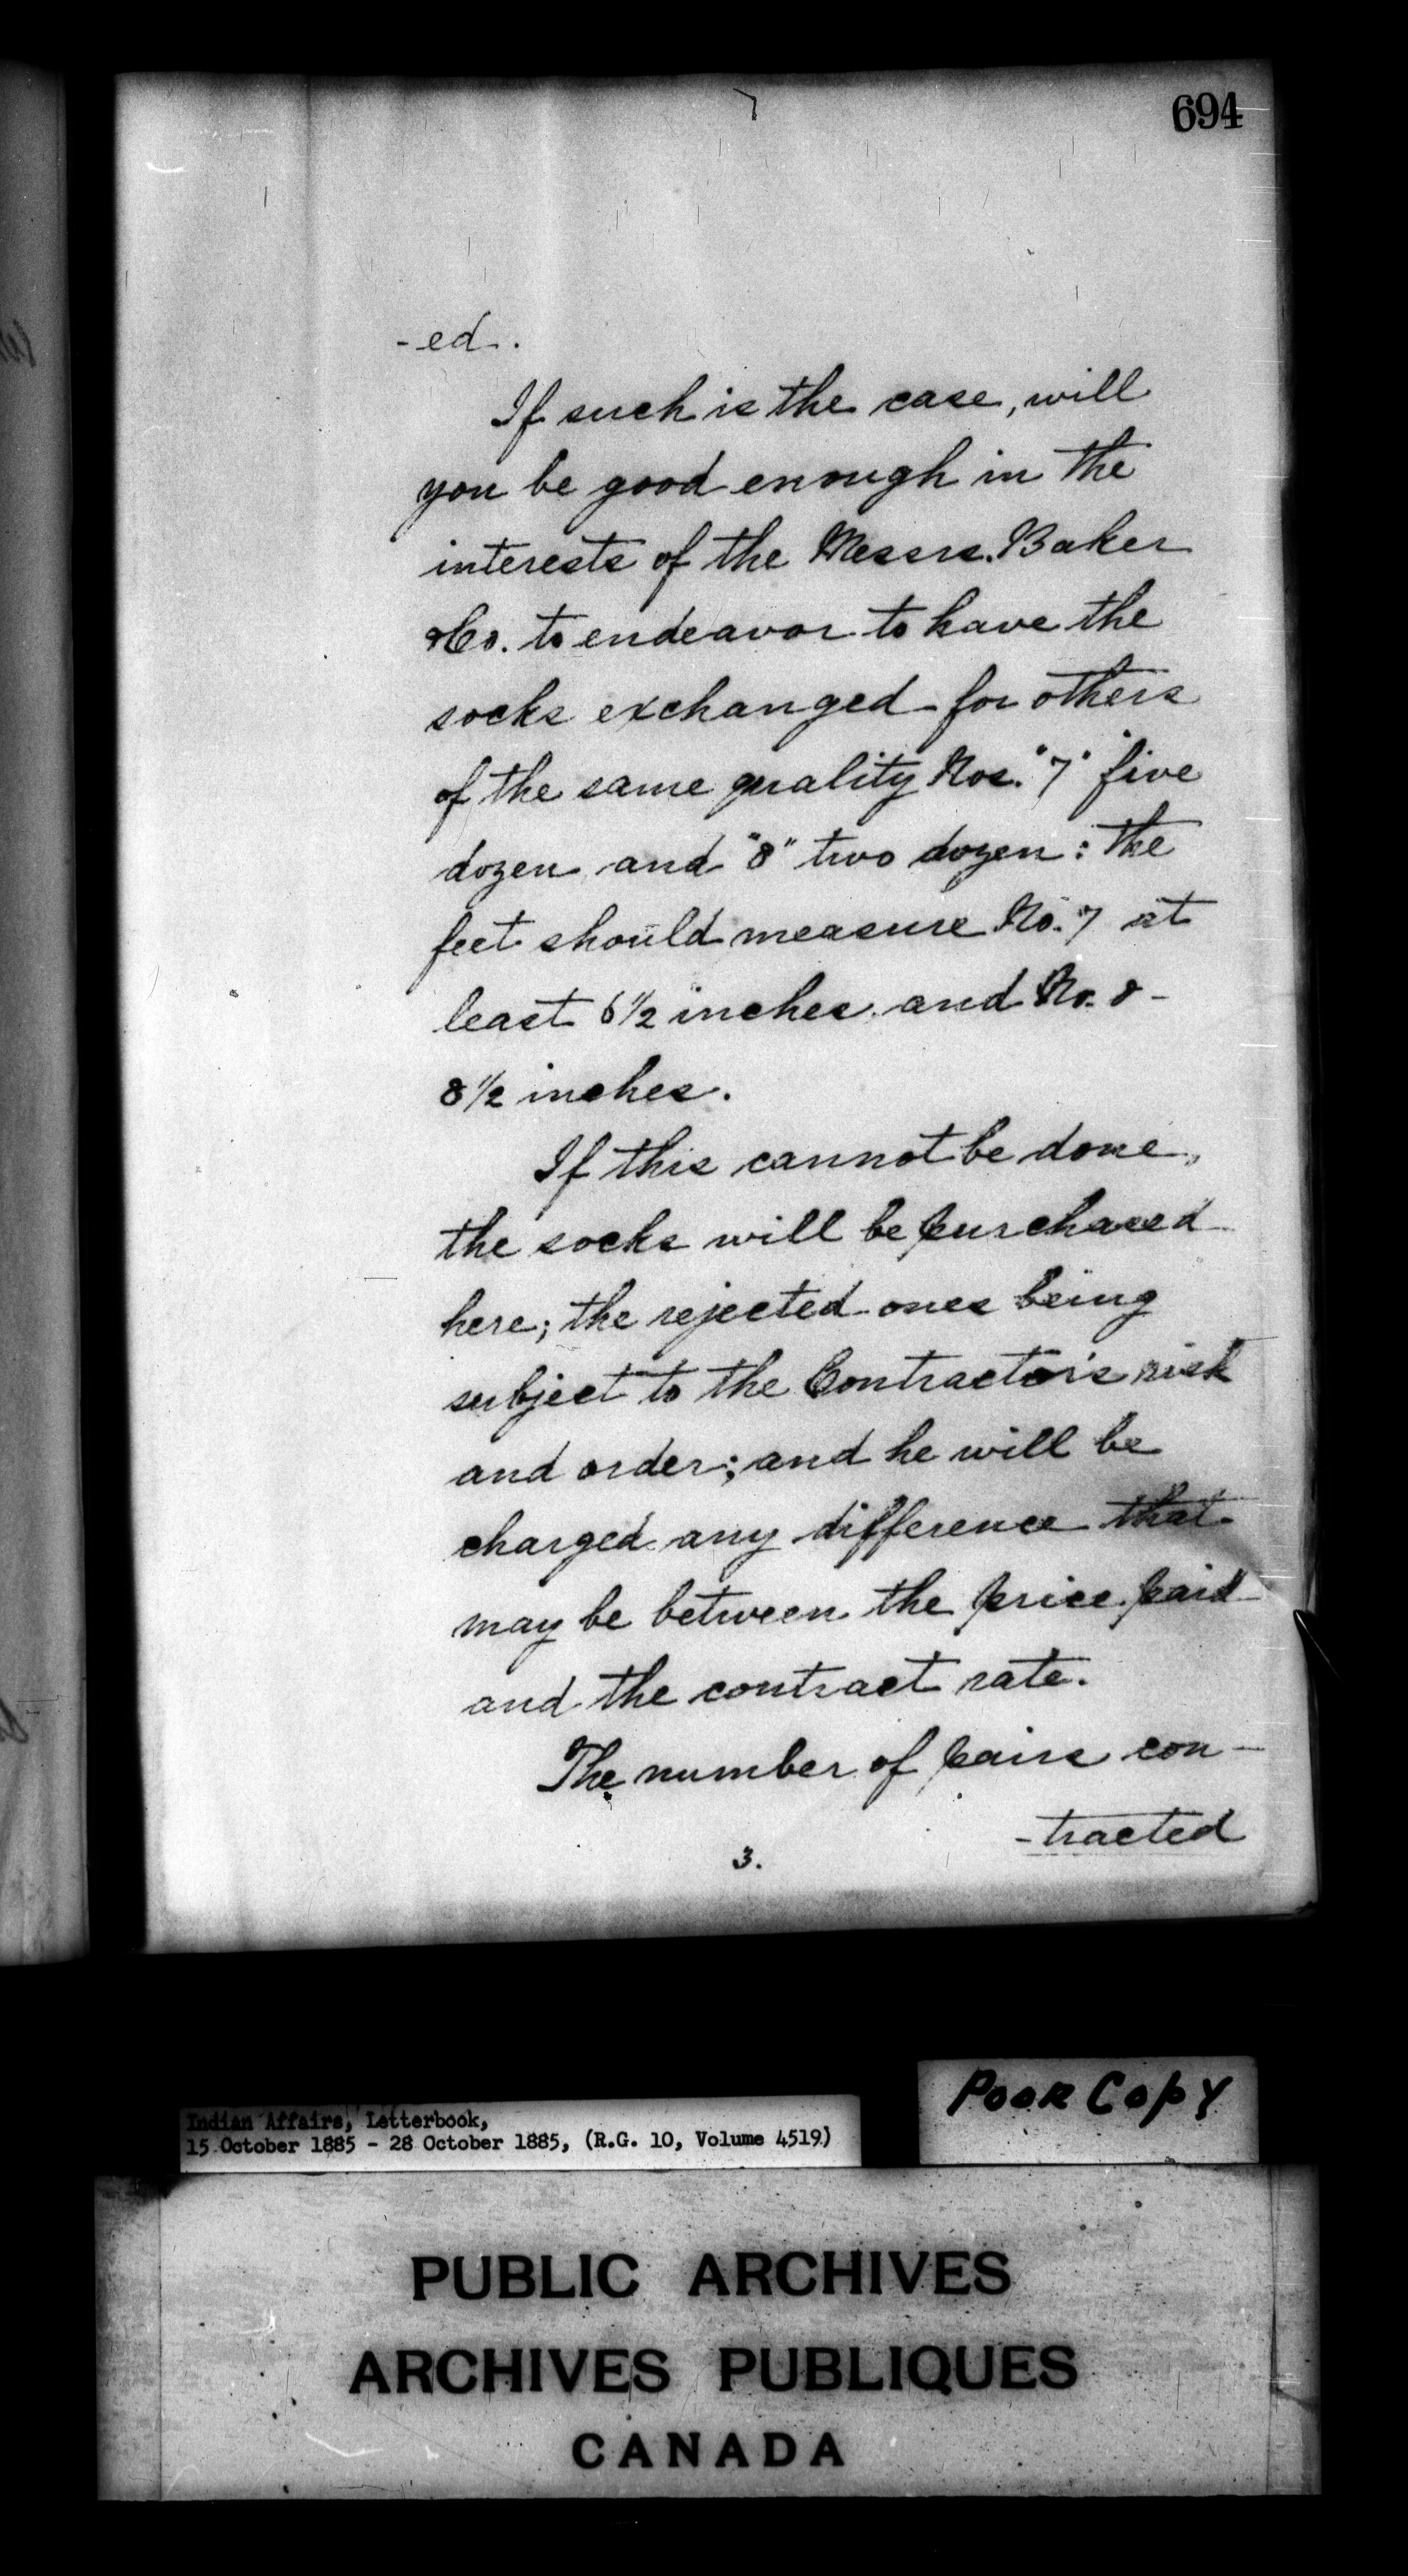 694
-ed.
If such is the case, will
you be good enough in the
interests of the Messrs. Baker
& Co. to endeavor to have the
socks exchanged for others
of the same quality Nos. "7" five
dozen and "8" two dozen: the
feet should measure No. 7 at
least 6 1/2 inches and No. 8 -
8 1/2 inches.
If this cannot be done,
the socks will be purchased
here; the rejected ones being
subject to the Contractor's risk
and order; and he will be
charged any difference that
may be between the price paid
and the contract rate.
The number of pairs con-
-tracted
3.
Poor Copy
Indian Affairs, Letterbook,
15 October 1885 - 28 October 1885, (R.G. 10, Volume 4519)
PUBLIC ARCHIVES
ARCHIVES PUBLIQUES
CANADA